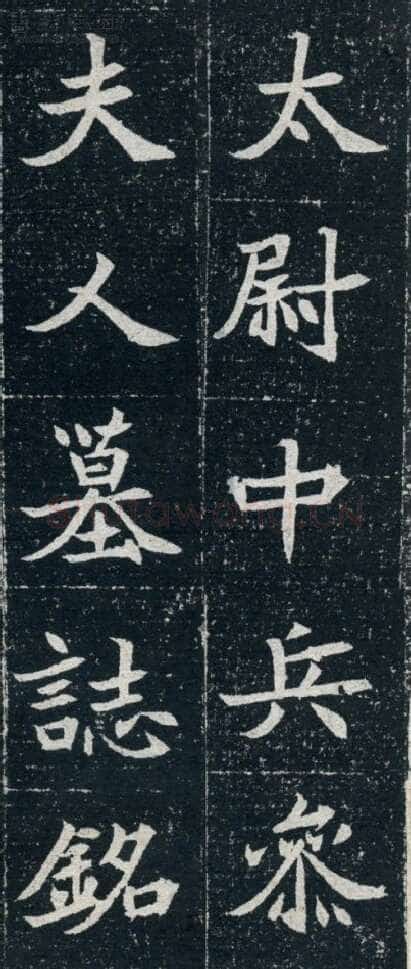 太尉中兵叅
夫人墓誌銘